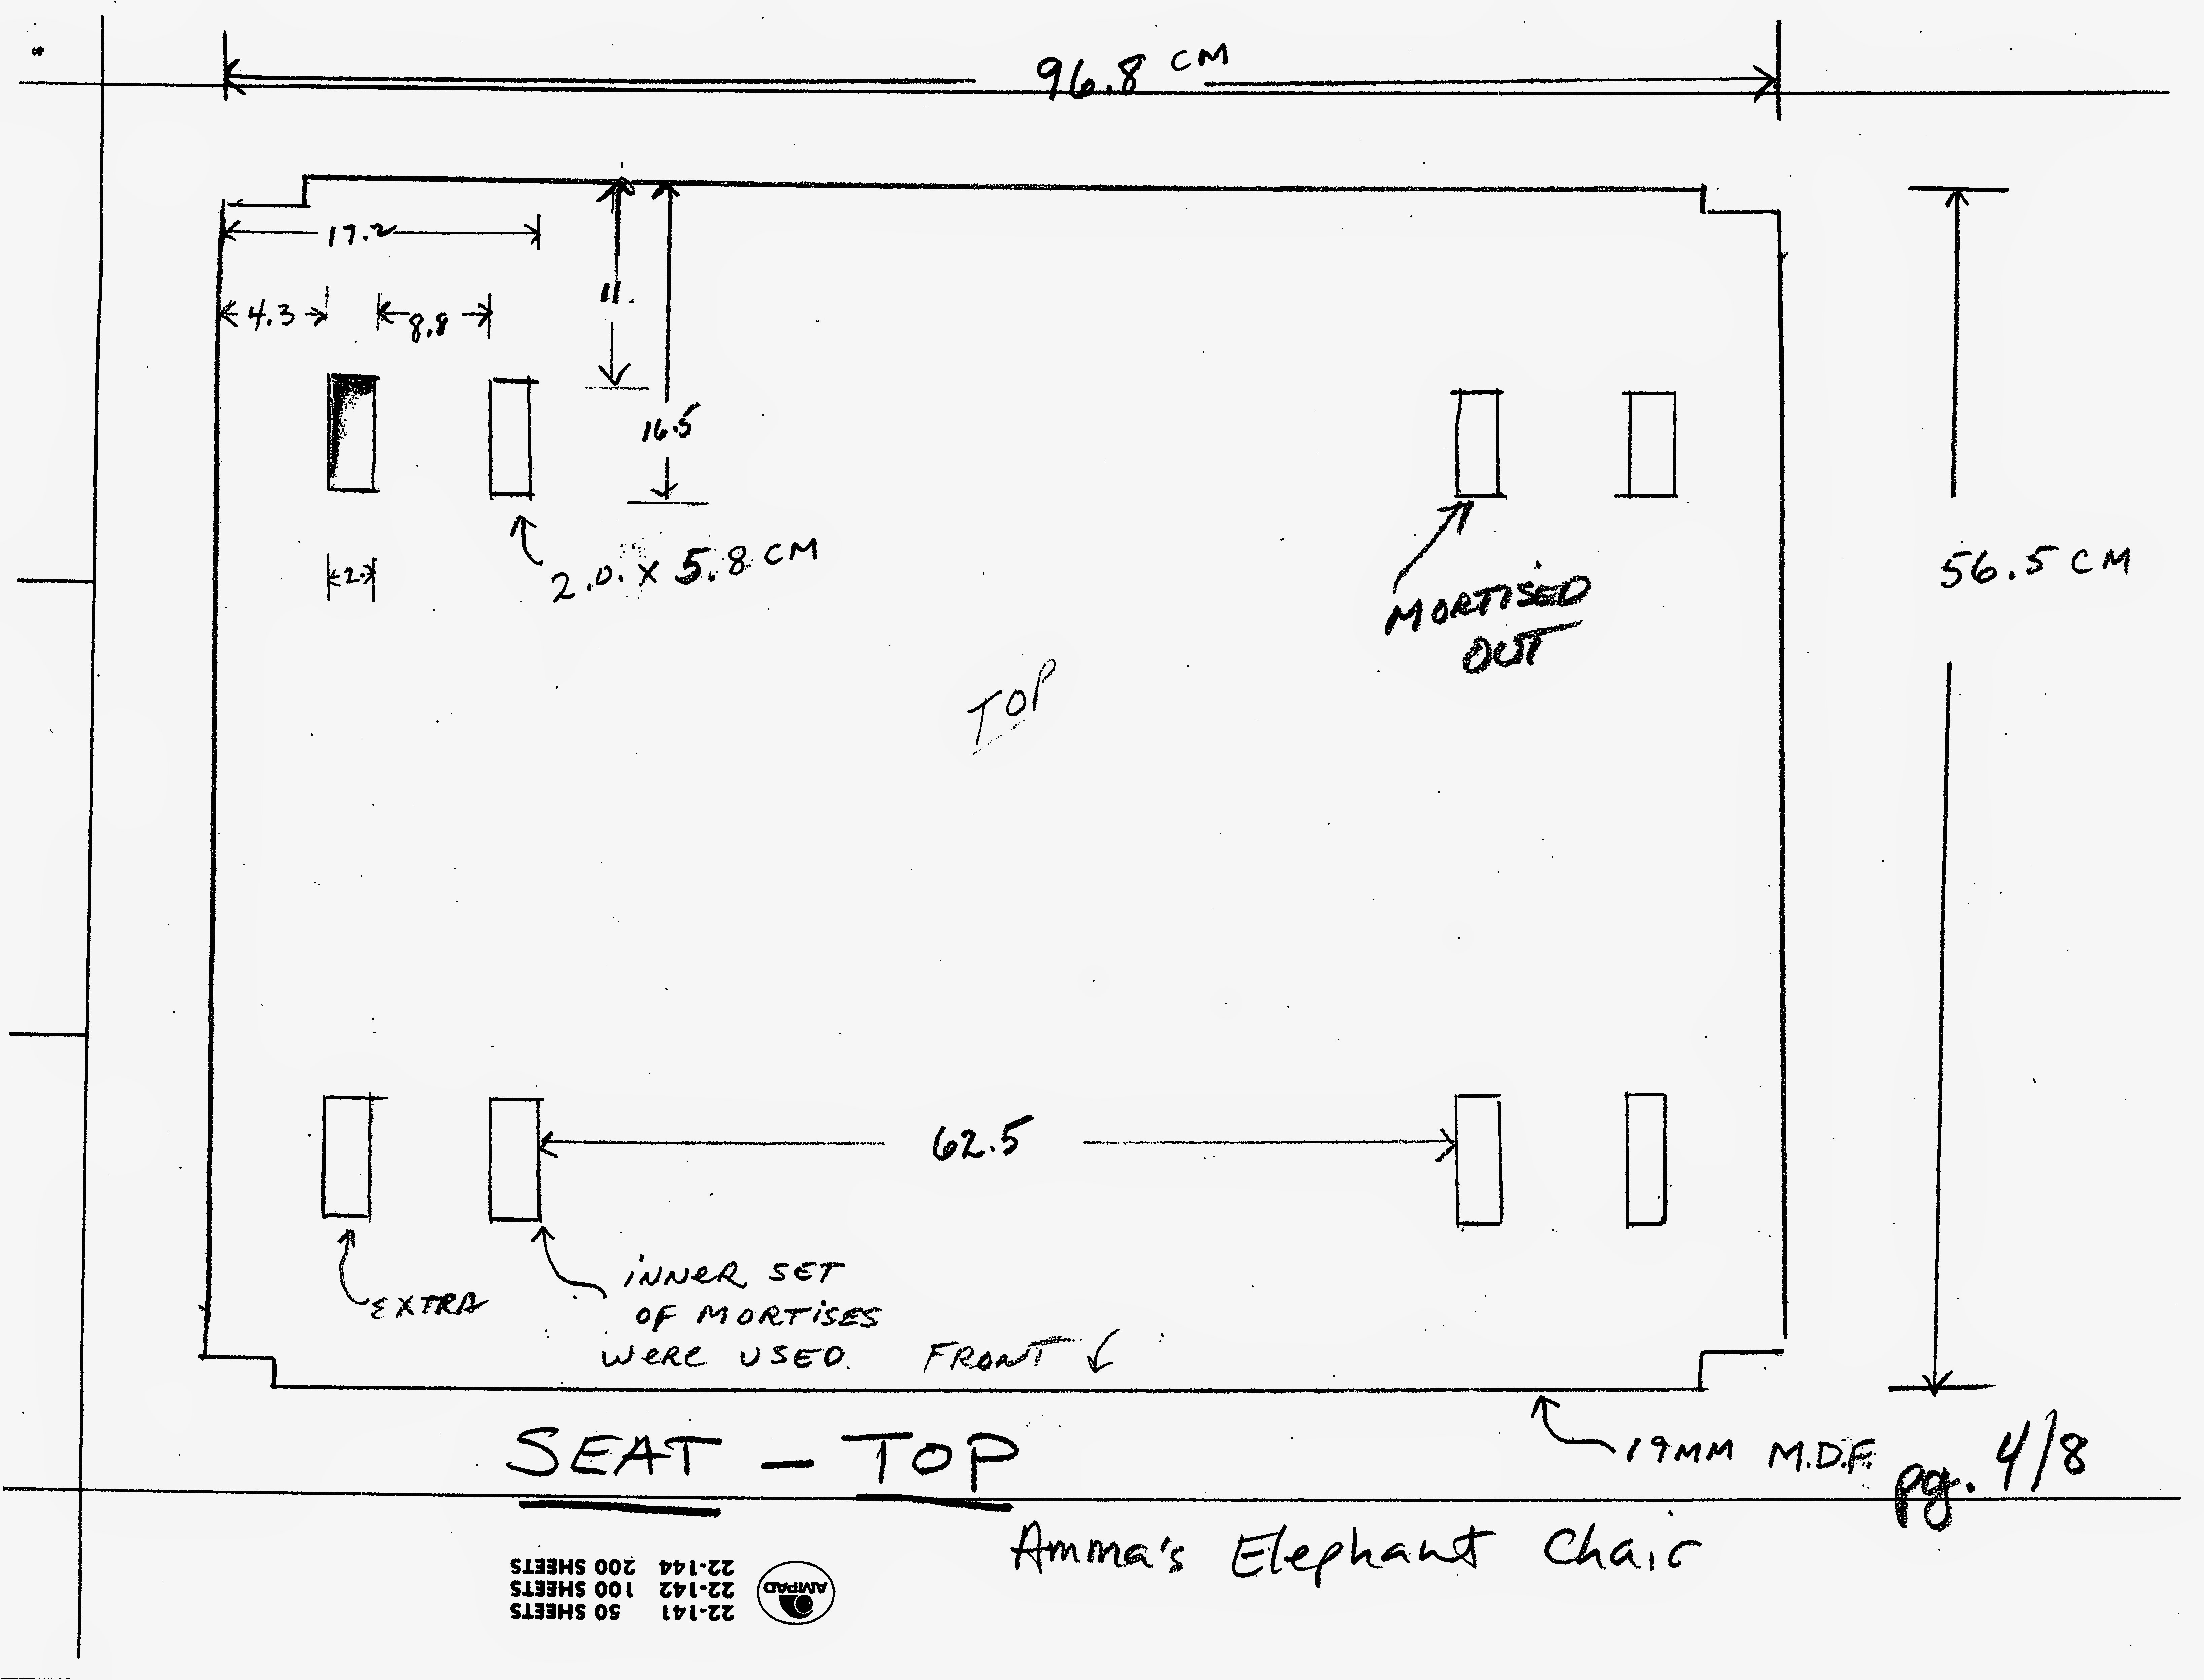 96.8 CM
17.2
11.
4.3
8.8
16.5
2.0. x 5.8 CM
2.
MORTISED
OUT
56.5 CM
TOP
62.5
EXTRA
INNER SET
OF MORTISES
WERE USED.
FRONT
SEAT - TOP
19MM M.D.F.
pg. 4/8
Amma's Elephant Chair
22-141 50 SHEETS
22-142 100 SHEETS
22-144 200 SHEETS
AMPAD